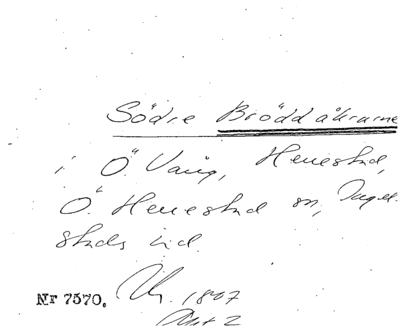 Södre Bröddåkrarne
i Ö. Vång, Henestad,
Ö. Henestad sn, Ingel-
stads hd.
Nr 7570. 1807
Akt 2